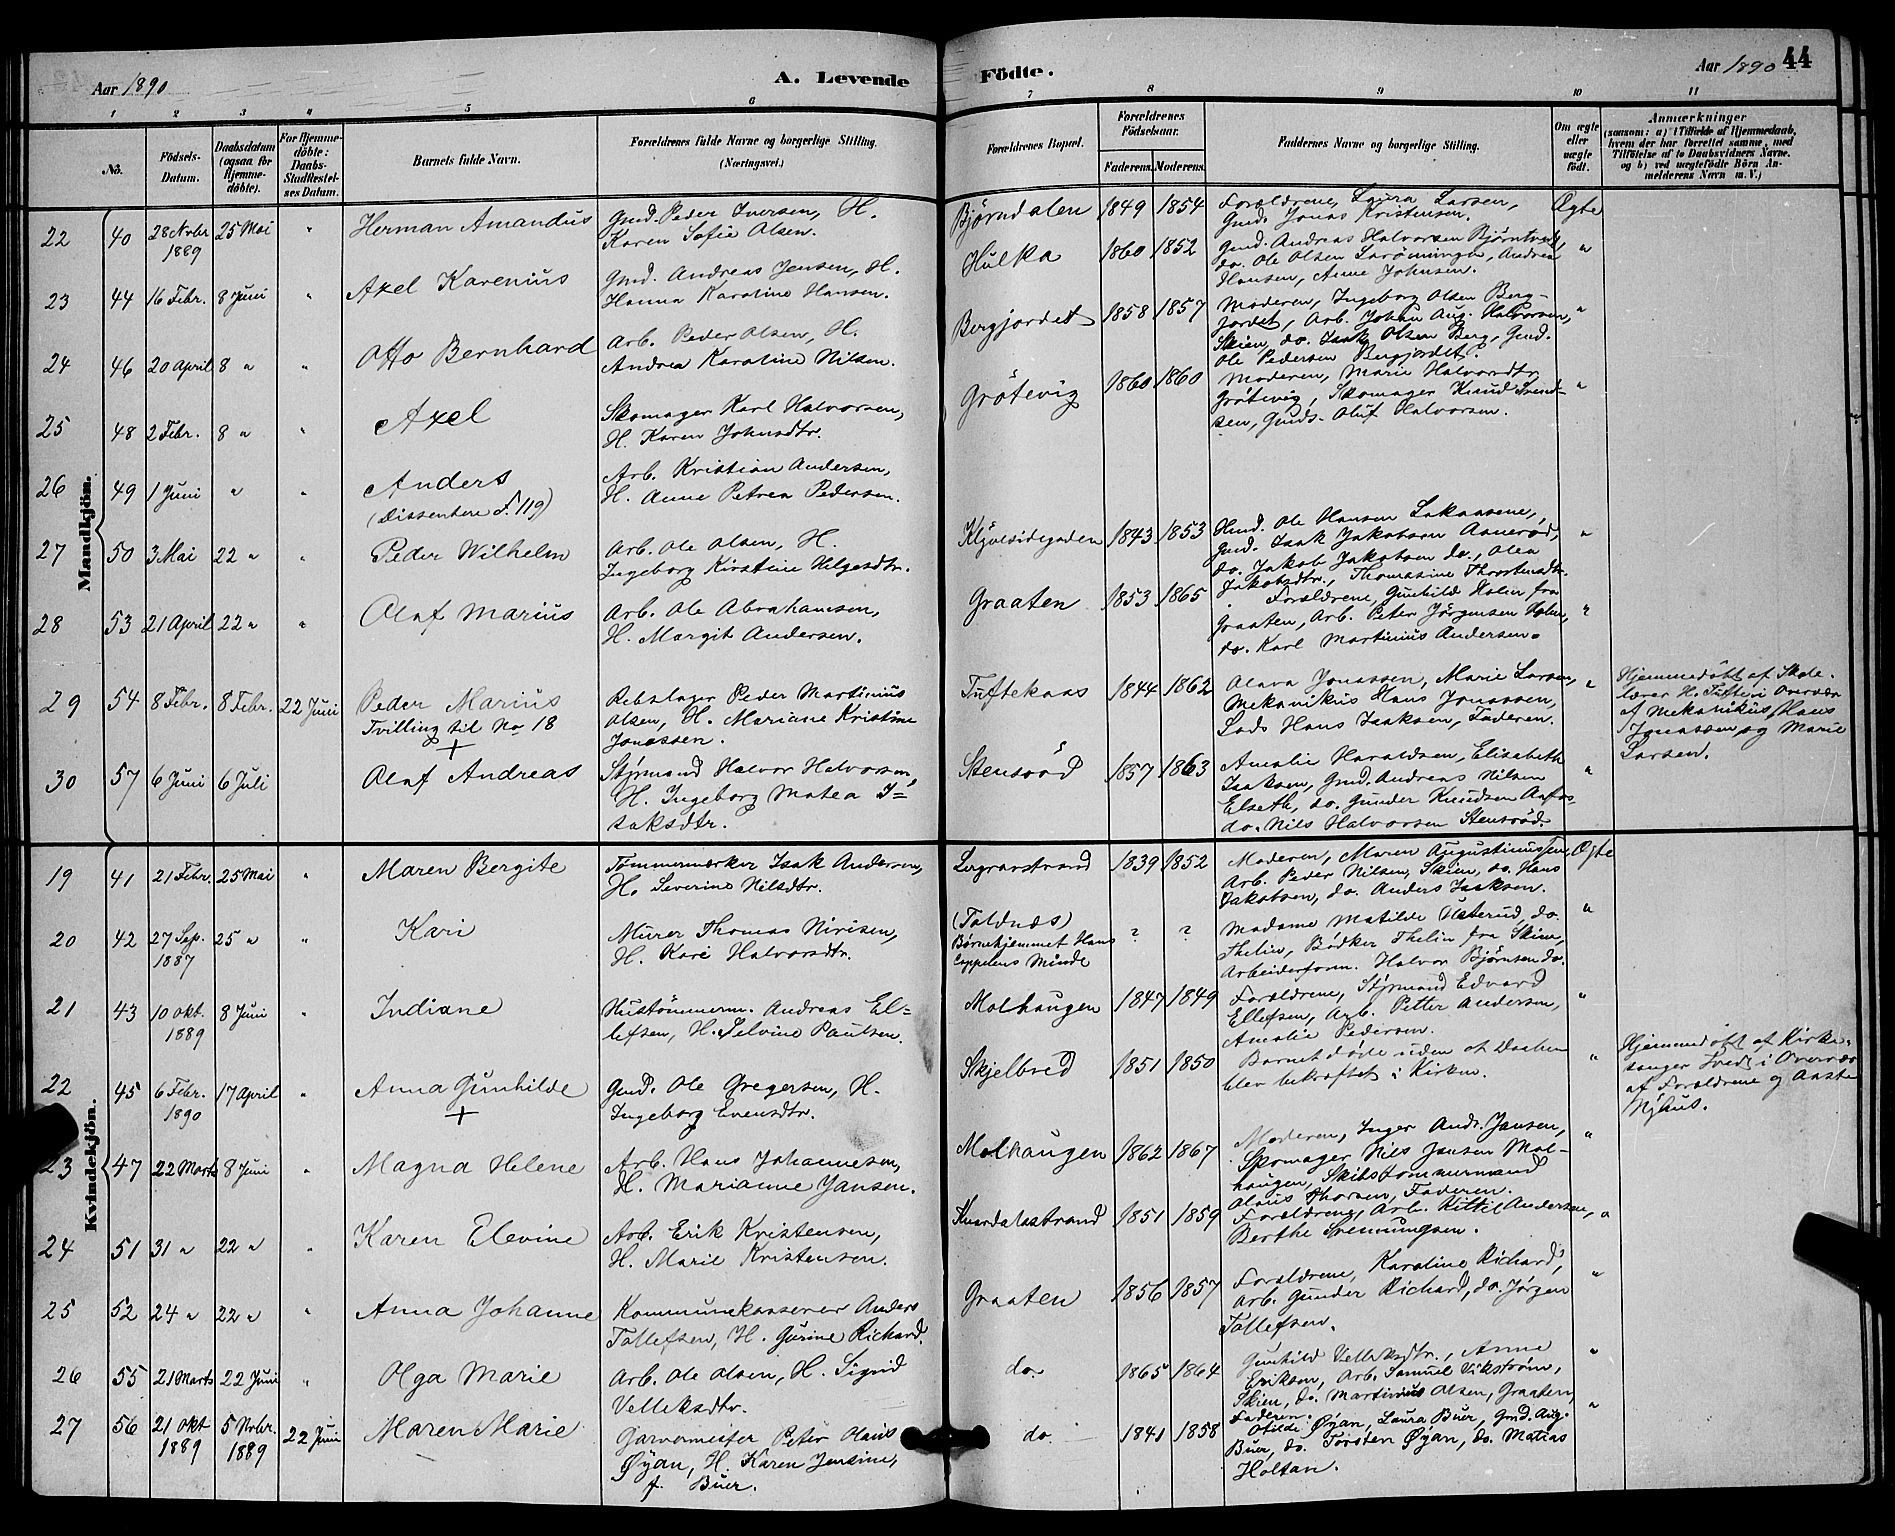 Aar 1890
A. Levende Födte.
Aar 1890 44
1 2 3 4 5 6 7 8 9 10 11
No.
Födsels-Datum.
Daabsdatum (ogsaa for Hjemmedöbte).
For Hjemmedöbte: Daabs-Stadfæstelses Datum.
Barnets fulde Navn.
Forældrenes fulde Navne og borgerlige Stilling. (Næringsvei.)
Forældrenes Bopæl.
Forældrenes Födselsaar.
Faderens. Moderens.
Faddernes Navne og borgerlige Stilling.
Om ægte eller uægte födt.
Anmærkninger
(saasom: a) i Tilfælde af Hjemmedaab, hvem der har forrettet samme, med Tilföielse af to Daabsvidners Navne, og b) ved uægtefödte Börn Anmelderens Navn m. V.)
Mandkjön.
22 40 28 Novbr. 1889 25 Mai " Herman Amandus
Gmd. Peder Iversen, H.
Karen Sofie Olsen.
Bjørndalen 1849 1854
Forældrene, Laura Larsen,
Gmds Jonas Kristensen.
Ægte
23 44 16 Febr. 8 Juni " Axel Karenius
Gmd. Andreas Jensen, H.
Hanna Karoline Hansen.
Hulka 1860 1852
Gmd. Andreas Halvorsen Bjørntvedt,
do. Ole Olsen Andrea
Hansen, Anne Johnsen.
"
24 46 20 April 8 " " Otto Bernhard
Arb. Peder Olsen, H.
Andrea Karoline Nilsen.
Bergjordet 1858 1857
Moderen, Ingeborg Olsen Berg-
jordet, Arb. Johan Aug. Halvorsen,
Skien, do. Isak Olsen Berg, Gmd.
Ole Pedersen Bergjordet.
"
25 48 2 Febr. 8 " " Axel
Skomager Karl Halvorsen,
H. Karen Johnsdtr.
Grötevig 1860 1860
Moderen, Marie Halvorsdtr.
Grötevig, Skomager Knud Svend-
sen, Gmds. Oluf Halvorsen.
"
26 49 1 Juni " " Anders
(Dissentere d. 119)
Arb. Kristian Andersen,
H. Anne Petrea Pedersen.
27 50 3 Mai 22 " " Peder Wilhelm
Arb. Ole Olsen, H.
Ingeborg Kirstine Helgesdtr.
Kljovsidegaden 1843 1853
Hmd. Ole Hansen
Gmd. Isak Jakobsen Aamerød,
do. Jakob Jakobsen do., Olea
Jakobsdtr., Thomasine Thorstensdtr.
"
28 53 21 April 22 " " Olaf Marius
Arb. Ole Abrahamsen,
H. Margit Andersen.
Graaten 1853 1865
Forældrene, Gunhild Holm fra
Graaten, Arb. Peter Jörgensen Holm,
do. Karl Martinius Andersen.
"
29 54 8 Febr. 8 Febr. 22 Juni Peder Marius
Tvilling til No 18
+
Rebslager Peder Martinius
Olsen, H. Mariane Kristine
Jonassen.
Tuftekaas 1844 1862
Olava Jonassen, Marie Larsen,
Mekanikus Hans Jonassen,
Lods Hans Isaksen, Faderen.
"
Hjemmedöbt af Skole-
lærer H. Tufteri Overvær
af Mekanikus Hans
Jonassen og Marie
Larsen.
30 57 6 Juni 6 Juli Olaf Andreas
Styrmand Halvor Halvorsen,
H. Ingeborg Matea I-
saksdtr.
Stensrød 1857 1863
Amalie Haraldsen, Elisabeth
Isaksen, Gmd. Andreas Nilsen
Elseth, do. Gunder Knudsen Aafos
do. Nils Halvorsen Stensrød.
"
Kvindekjön.
19 41 21 Febr. 25 Mai " Maren Bergite
Tömmermærker Isak Andersen,
H. Severine Nilsdtr.
Lergravstrand 1839 1852
Moderen, Maren Augustinussen,
Arb. Peder Nilsen, Skien, do. Hans
Jakobsen, do. Anders Isaksen.
Ægte
20 42 27 Sep. 1887 25 " " Kari
Murer Thomas Nirisen,
H. Kari Halvorsdtr.
(Foldnæs)
Børnehjemmet Hans
Cappelens Minde
? ?
Madame Matilde Ueterud, do.
Thelin, Bödker Thelin fra Skien,
Arbeiderform. Halvor Björnsen do.
"
21 43 10 Okt. 1889 8 Juni " Indiane
Hustömmerm. Andreas El-
lefsen, H. Selvine Paulsen.
Molhaugen 1847 1849
Forældrene, Styrmand Edvard
Ellefsen, Arb. Petter Andersen,
Amalie Pedersen.
"
22 45 6 Febr. 1890 17 April " Anna Gunhilde
+
Gmd. Ole Gregersen, H.
Ingeborg Evensdtr.
Skjelbred 1851 1850
Barnet döde uden at Daaben
blev bekræftet i Kirken.
"
Hjemmedöbt af Kirke-
sanger i Overvær
af Forældrene og Aaste
Nyhus.
23 47 22 Marts 8 Juni " Magna Helene
Arb. Hans Johannesen,
H. Marianne Jansen.
Molhaugen 1862 1867
Moderen, Inger Andr. Jansen,
Skomager Nils Jansen Mol-
haugen, Skibstömmermand
Olaus Thorsen, Faderen.
"
24 51 31 " 22 " " Karen Elevine
Arb. Erik Kristensen,
H. Marie Kristensen.
Knardalsstrand 1851 1859
Forældrene, Arb. Kittil Andersen,
Berthe Svennungsen.
"
25 52 24 " 22 " " Anna Johanne
Kommunekasserer Anders
Tollefsen, H. Gurine Richard.
Graaten 1856 1857
Forældrene, Karoline Richard,
Arb. Gunder Richard, do. Jörgen
Tollefsen.
"
26 55 21 Marts 22 Juni " Olga Marie
Arb. Ole Olsen, H. Sigrid
Velleksdtr.
do. 1865 1864
Gunhild Velleksdtr., Anne
Eriksen, Arb. Samuel Vikström,
Skien, do. Martinius Olsen, Graaten,
Faderen.
"
27 56 21 Okt 1889 5 Novbr. 1889 22 Juni Maren Marie
Garvermester Peter Olaus
Øyan, H. Karen Jensine,
f. Buer.
do. 1841 1858
Otilde Øyan, Laura Buer, Gmd. Aug.
Buer, do. Torsten Øyan, do. Matias
Holtan.
"